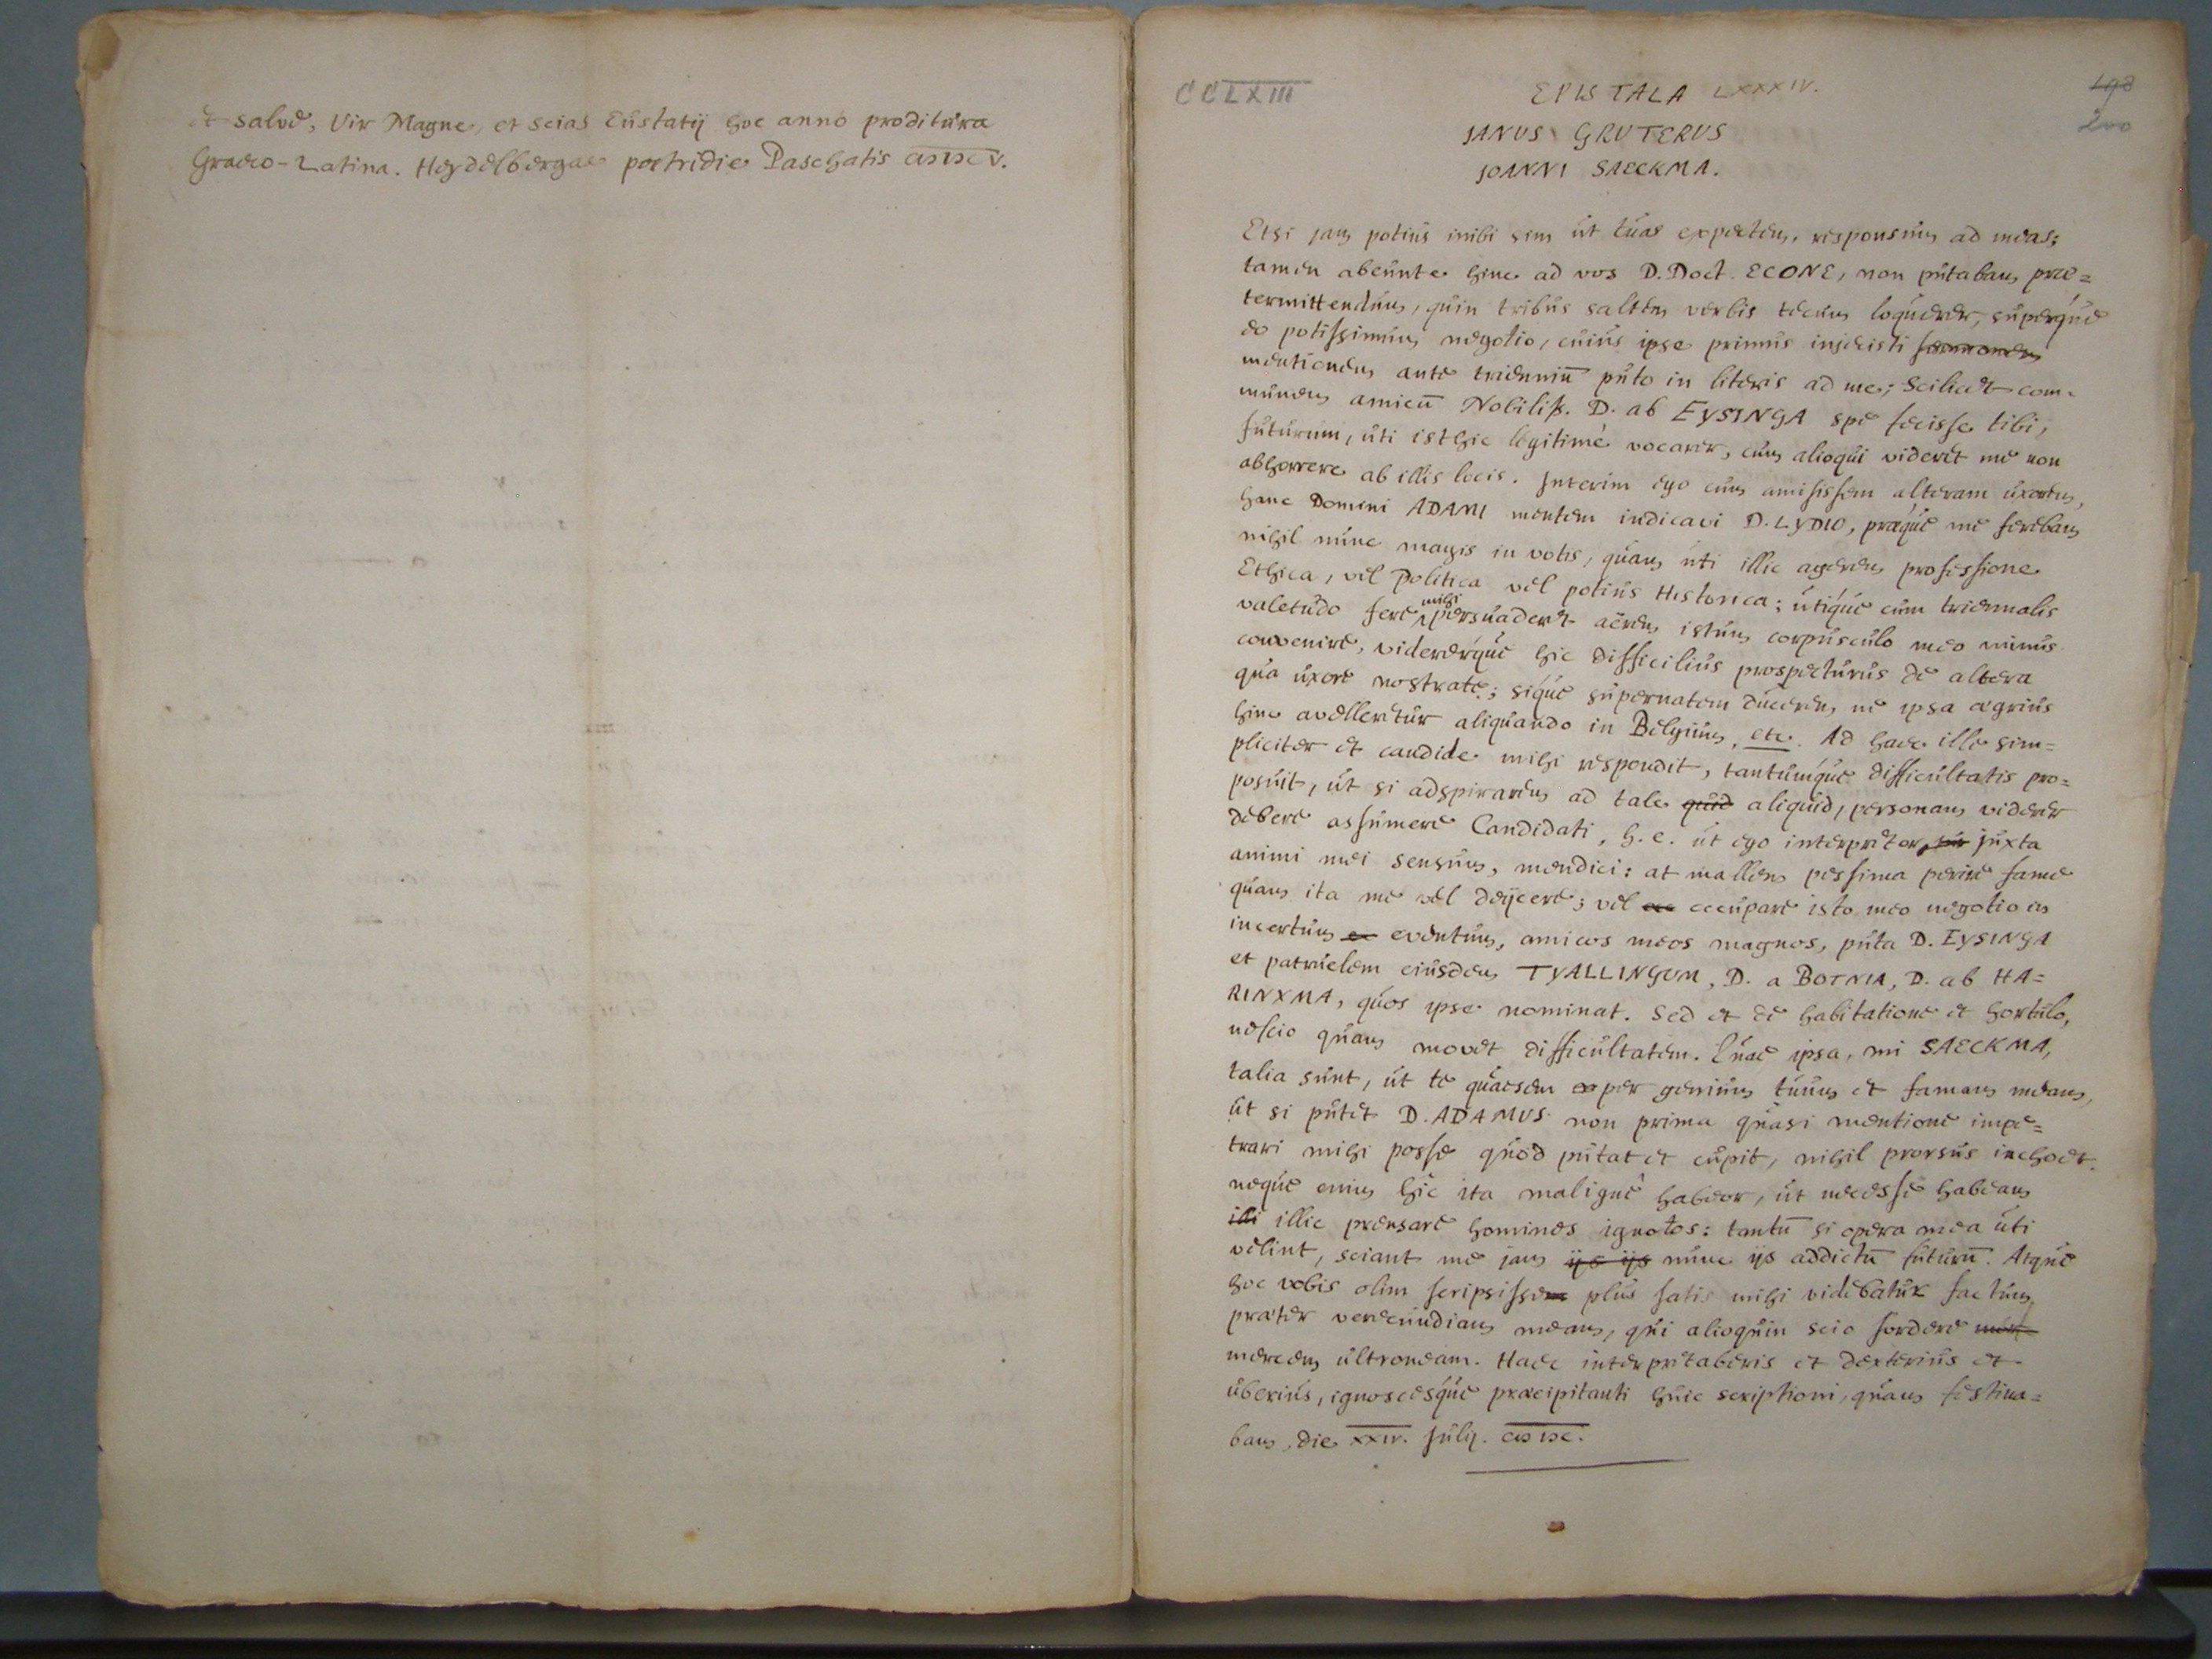 et salve, Vir Magne, et scias Eustatij hoc anno proditura
Graeco-Latina. Heydelbergae postridie Paschatis CIƆIƆC V.
CCLXIII
EPISTALA LXXXIV.
198
200
JANUS GRUTERUS
JOANNI SAECKMA.
Etsi jam potius inibi sim ut tuas expectem, responsum ad meas;
tamen abeunte hinc ad vos D. Doct. ECONE, non putabam prae=
termittendum, quin tribus saltem verbis tecum loquerer, superque
eo potissimum negotio, cuius ipse primus injecisti sermonem
mentionem ante trienniū puto in literis ad me; Scilicet com-
munem amicū Nobiliss. D. ab EYSINGA spē fecisse tibi,
futurum, uti isthic legitimè vocarer, cum alioqui videret me non
abhorrere ab illis locis. Interim ego cum amisissem alteram uxorem,
hanc Domini ADAMI mentem indicavi D. LYDIO, praeque me ferebam
nihil nunc magis in votis, quam uti illic agerem professione
Ethica, vel Politica vel potius Historica; utique cum triennalis
valetudo fere mihi persuaderet aërem istum corpusculo meo minus
convenire, viderérque hic difficilius prospecturus de altera
qua uxore nostrate; sique supernatem ducerem, ne ipsa aegrius
hinc avelleretur aliquando in Belgium, etc. Ad haec ille sim=
pliciter et candide mihi respondit, tantumque difficultatis pro=
posuit, ut si adspirarem ad tale quid aliquid, personam viderer
debere assumere Candidati, h.e. ut ego interpretor, juxta
animi mei sensum, mendici: at mallem pessima perire fame
quam ita me vel dejicere; vel occ occupare isto meo negotio in
incertum ex eventum, amicos meos magnos, puta D. EYSINGA
et patruelem eiusdem TYALLINGUM, D. a BOTNIA, D. ab HA=
RINXMA, quos ipse nominat. Sed et de habitatione et hortulo,
nescio quam movet difficultatem. Quae ipsa, mi SAECKMA,
talia sunt, ut te quaesem per genium tuum et famam meam,
ut si putet D. ADAMUS non prima quasi mentione impe=
trari mihi posse quod putat et cupit, nihil prorsus inchoet.
neque enim hîc ita malignè habeor, ut necesse habeam
illi illic prensare homines ignotos: tantū si opera mea uti
velint, sciant me jam ijs ijs nunc ijs addictū futurū. Atque
hoc vobis olim scripsisse plus satis mihi videbatur factum
praeter verecundiam meam, qui alioquin scio sordere mer
mercem ultroneam. Haec interpretaberis et dexterius et
uberius, ignoscesque praecipitanti huic scriptioni, quam festina=
bam, die XXIV. Julij. CIƆIƆC.